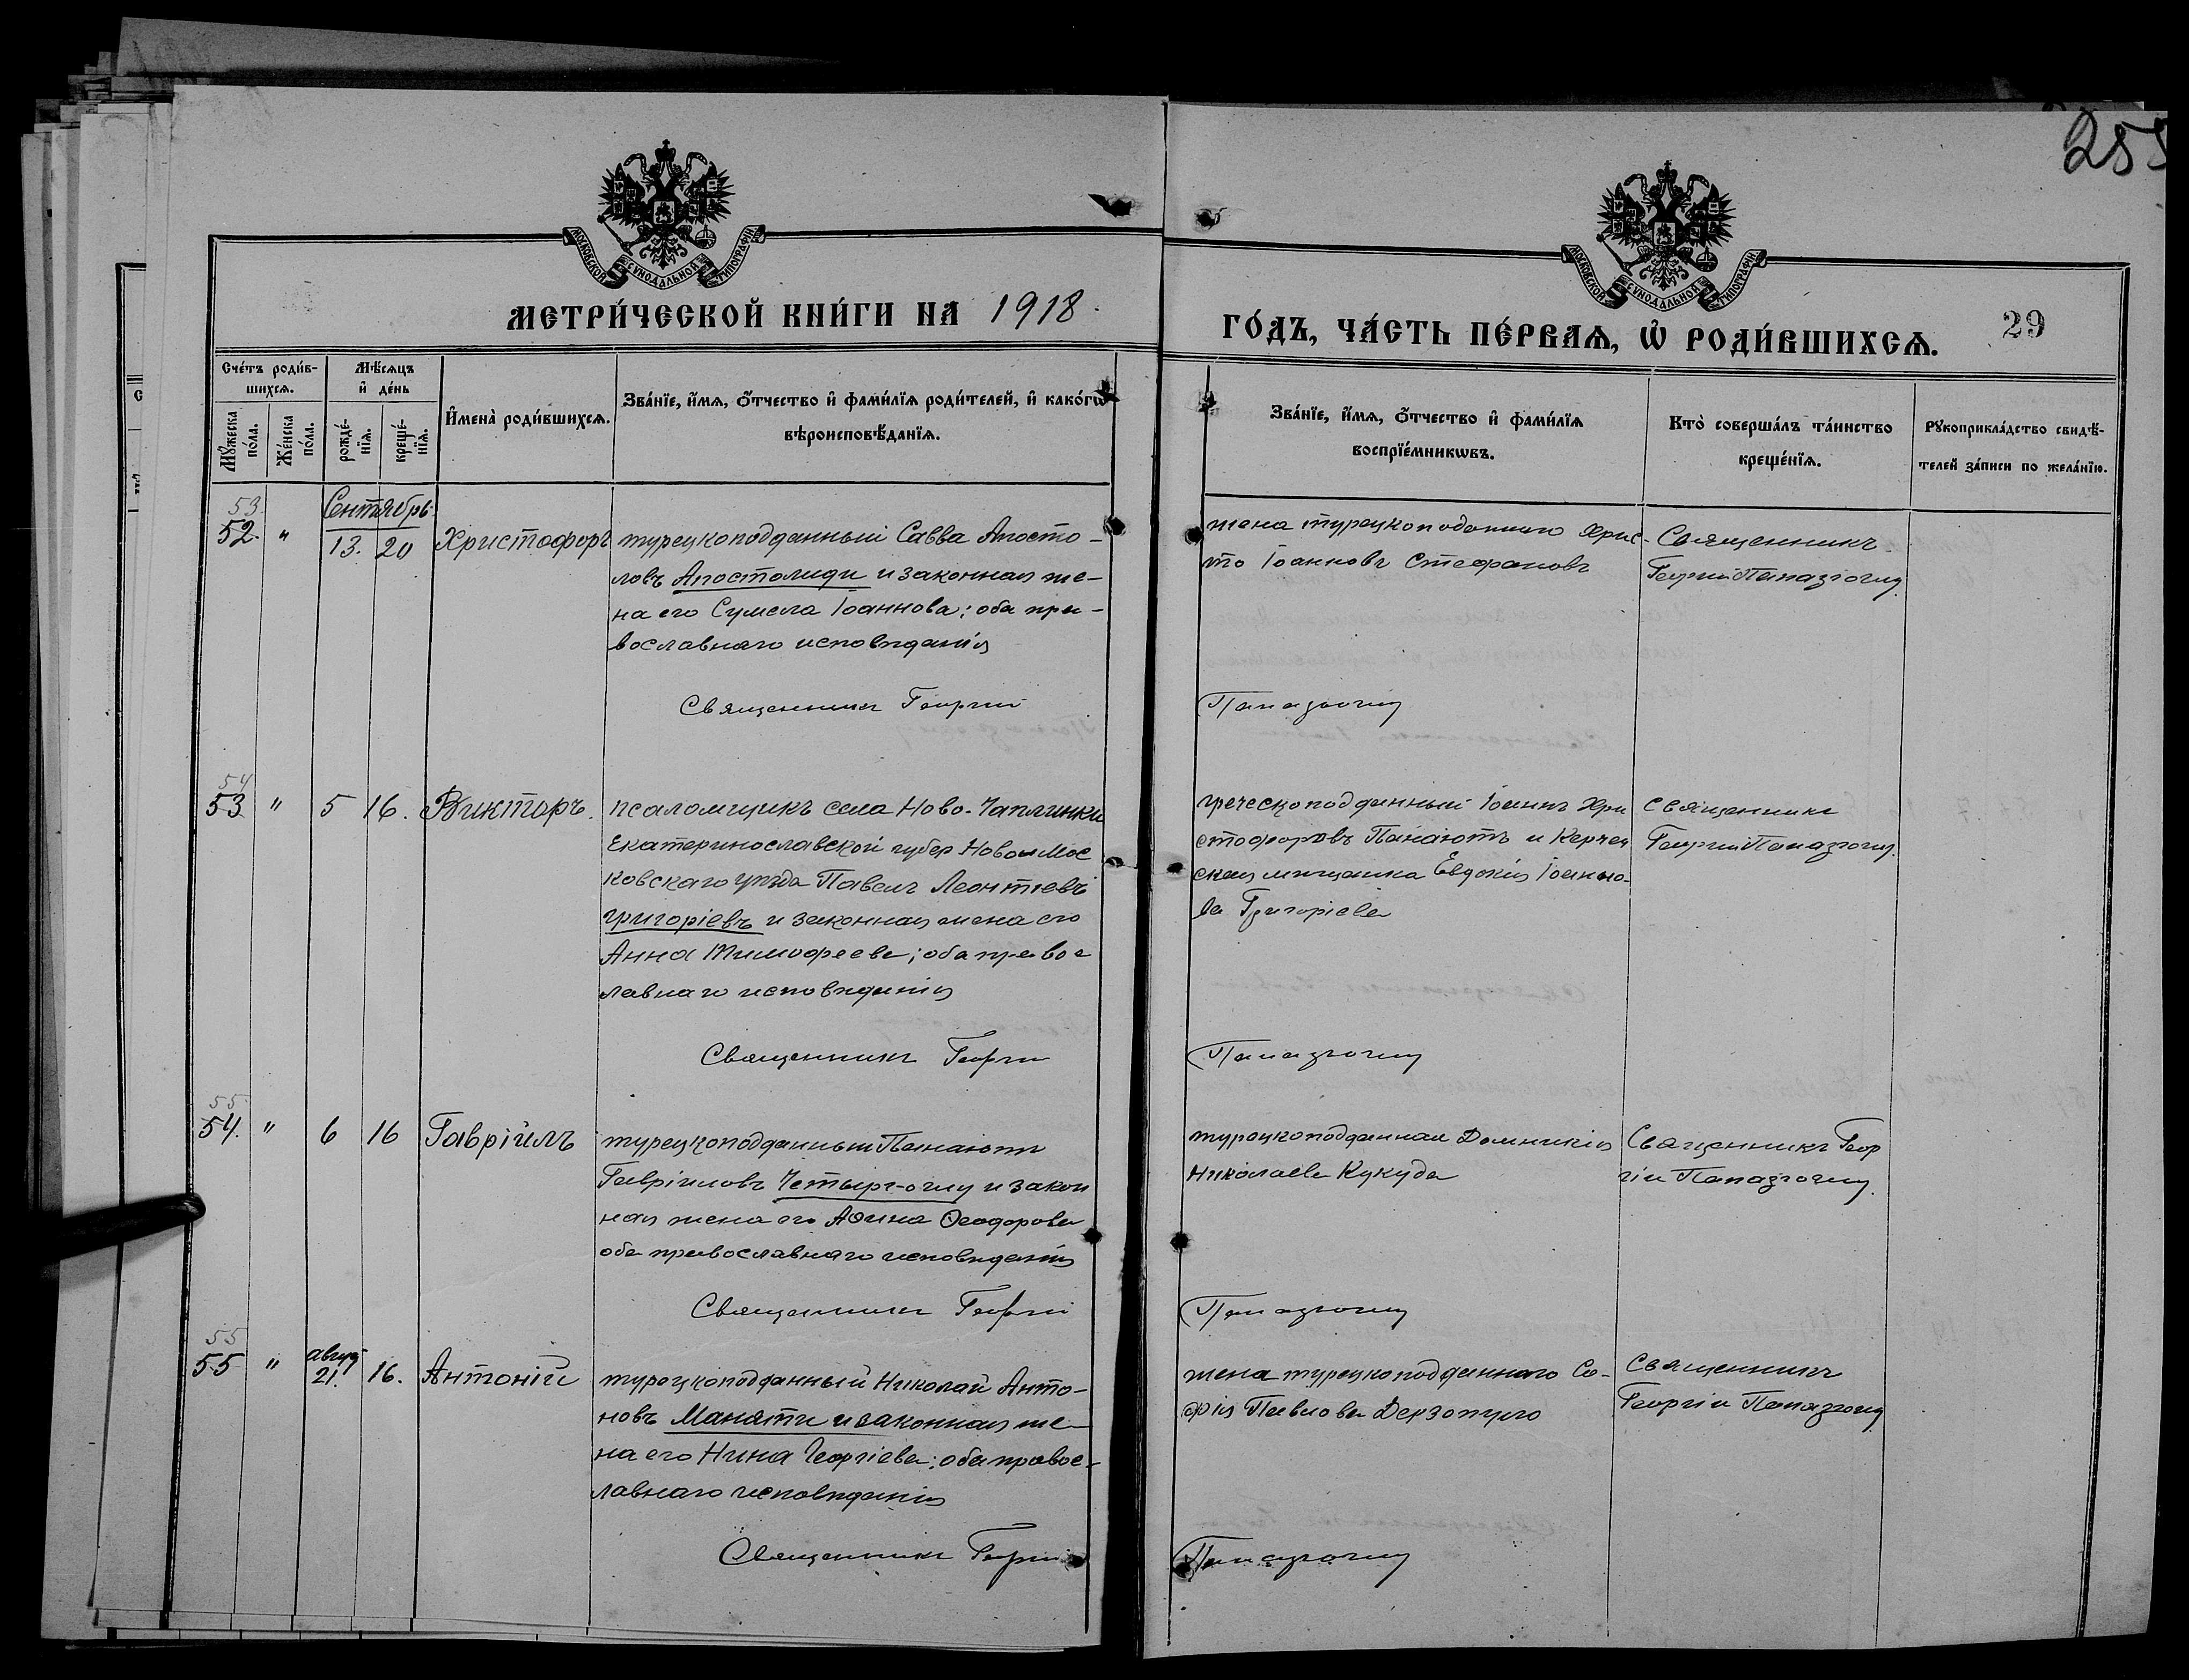 255
МОСКОВСКОЙ СѴНОДАЛЬНОЙ ТИПОГРАФІИ
МОСКОВСКОЙ СѴНОДАЛЬНОЙ ТИПОГРАФІИ
МЕТРИ́ЧЕСКОЙ КНИ́ГИ НА 1918
ГО́ДЪ, ЧА́СТЬ ПЕ́РВАѦ, Ѡ РОДИ́ВШИХСѦ. 29
Сче́тъ роди́в-
шихсѧ.
Мѣ́сѧцъ
и҆ де́нь
Мꙋ́жеска
по́ла.
Же́нска
по́ла.
рожде́-
нїѧ.
креще́-
нїѧ.
И҆мена̀ роди́вшихсѧ.
Зва́нїе, и҆́мѧ, ѻ҆́тчество и҆ фами́лїѧ роди́телей, и҆ како́гѡ
вѣроисповѣ́данїѧ.
Зва́нїе, и҆́мѧ, ѻ҆́тчество и҆ фами́лїѧ
воспрїе́мникѡвъ.
Кто̀ соверша́лъ та́инство
креще́нїѧ.
Рꙋкоприкла́дство свидѣ́-
телей за́писи по жела́нїю.
53
52. "
Сентябрь
13. 20
Христофоръ
турецкоподданный Савва Апосто-
ловъ Апостолиди и законная же-
на его Сумела Іоаннова; оба пра-
вославнаго исповѣданія
Священникъ Георгій
жена турецкоподданнаго Хрис-
то Іоанновъ Стефановъ
Священникъ
Георгій Папазоглу
Папазоглу
54
53 " 5 16. Викторъ.
псаломщикъ села Ново-Чаплинки
Екатеринославской губер Новомос
ковскаго уѣзда Павелъ Леонтіевъ
Григоріевъ и законная жена его
Анна Тимофеева; оба правос
лавнаго исповѣданія
Священникъ Георгій
греческоподданный Іоаннъ Хри
стофоровъ Панаіотъ и Керчен
ская мѣщанка Евдокія Іоанно-
ва Григоріева
Священникъ
Георгій Папазоглу.
Папазоглу
55
54. " 6 16 Гавріилъ
турецкоподданный Панаіотъ
Гавріиловъ Четыръ-оглу и закон
ная жена его Аѳина Ѳеодорова
оба православнаго исповѣданія
Священникъ Георгій
турецкоподданная Домникія
Николаева Кукуда
Священникъ Геор
гій Папазоглу.
Папазоглу
55
55 " август 21. 16. Антоній
турецкоподданный Николай Анто-
новъ Маняти и законная же-
на его Нина Георгіева; оба правос-
лавнаго исповѣданія
Священникъ Георгій
жена турецкоподданнаго Со-
фія Павлова Дерзопуло
Священникъ
Георгій Папазоглу
Папазоглу